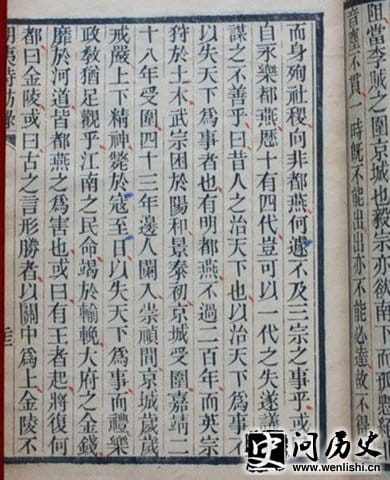 阻當李賊之圍京城也毅宗亦欲南下
音塵不貫一時既不能出出亦不能必達故不得
而身殉社稷向非都燕何遽不及三宗之事乎或
自永樂都燕歷十有四代豈可以一代之失遂議
謀之不善乎曰昔人之治天下也以治天下為事不
以失天下為事者也有明都燕不過二百年而英宗
狩於土木武宗困於陽和景泰初京城受圍嘉靖二
十八年受圍四十三年邊人闌入崇禎間京城歲歲
戒嚴上下精神斃於寇至日以失天下為事而禮樂
政教猶足觀乎江南之民命竭於輸輓大府之金錢
靡於河道皆都燕之為害也或曰有王者起將復何
都曰金陵或曰古之言形勝者以關中為上金陵不
明夷待訪錄
问历史
www.wenlishi.cn